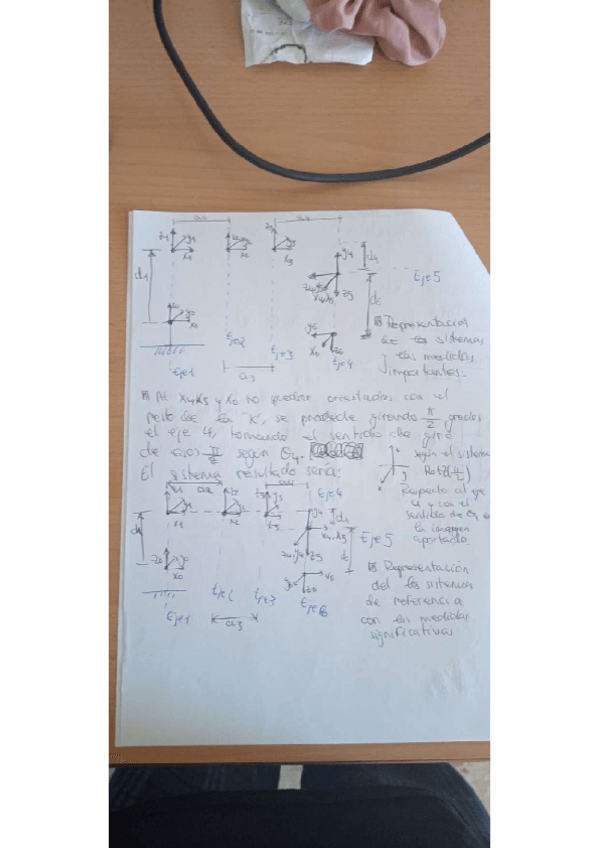 z1 y1
x1
x2
z3 y3
x3
y4
d4
d1
z5
Eje5
y0
x0
Eje2
Eje3
Eje4
Eje1
a3
Representación
de los sistemas
y las medidas
importantes.
Al x4 x5 y x6 no quedar orientados con el
resto de en "x", se procede girando π/2 grados
el eje 4, tomando el sentido de giro
de esos π/2 según θ4.
El sistema resultado sería:
según el sistema
Rotz(π/2)
Respecto al eje
4 y con el
sentido de θ4 en
la imagen
aportada.
a2
Eje4
x1
x2
x3
d4
d1
x4, x5
z4, y4 z5
Eje5
z0 y0
x0
y6 x6
z6
Eje1
Eje2
Eje3
Eje6
a3
Representación
del los sistemas
de referencia
con las medidas
significativas